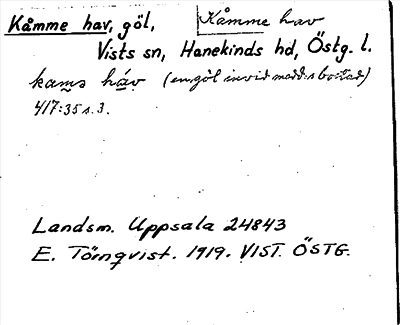 Kåmme hav, göl, Kåmme hav
Vists sn, Hanekinds hd, Östg. l.
kams háv (en göl invid madd:s bostad)
417:35 s. 3.
Landsm. Uppsala 24843
E. Törnqvist. 1919. VIST. ÖSTG.